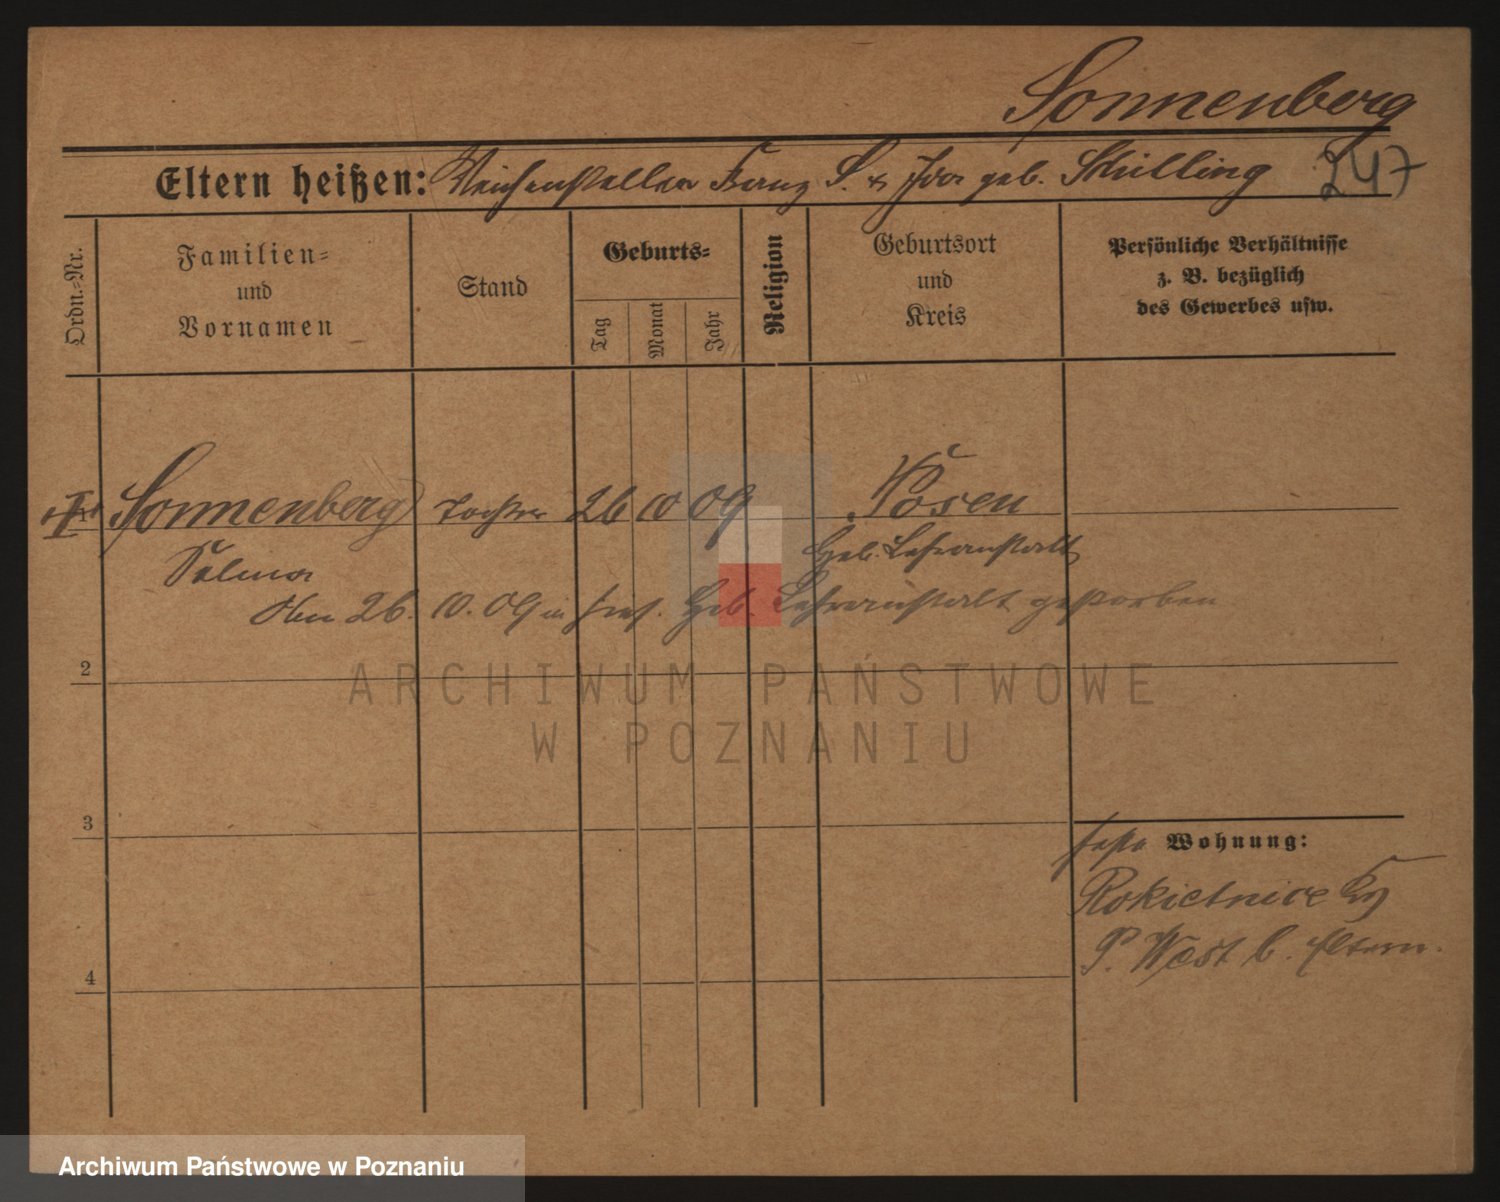 Sonnenberg
247
Eltern heißen: Weichensteller Franz S. u Ida geb. Schilling
Ordn.=Nr.
Familien=
und
Vornamen
Stand
Geburts=
Tag
Monat
Jahr
Religion
Geburtsort
und
Kreis
Persönliche Verhältnisse
z. B. bezüglich
des Gewerbes usw.
1 Sonnenberg Tochter 26 10 09 Posen
Selma Heb. Lehranstalt
Am 26. 10. 09 in Heb. Lehranstalt gestorben
2
3
Wohnung:
Rokietnice
P. West b. Eltern.
4
ARCHIWUM PAŃSTWOWE
W POZNANIU
Archiwum Państwowe w Poznaniu